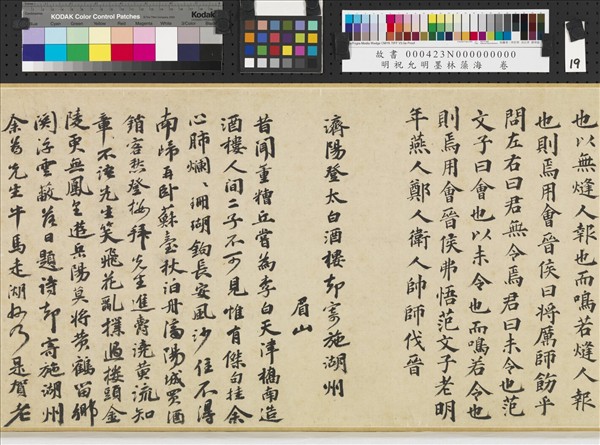 KODAK Color Control Patches
Kodak
故書 000423N000000000 卷
明祝允明墨林藻海
19
也以無燧人報也而鳴若燧人報
也則焉用會晉侯曰將厲師飭乎
問左右曰君無令焉君曰未令也范
文子曰會也以未令也而鳴若令也
則焉用會晉侯弗悟范文子老明
年燕人鄭人衛人帥師伐晉
濟陽登太白酒樓却寄施湖州
眉山
昔聞董糟丘嘗為李白天津橋南造
酒樓人間二子不可見惟有傑句挂余
心肺爛々珊瑚鉤長安風沙住不得
南歸再臥蘇臺秋泊舟濟陽城買酒
銷客愁登樓拜先生進觴澆黃流知
章不語先生笑飛花亂撲過樓頭金
陵更無鳳皇遊岳陽莫將黃鶴留鄉
関浮雲蔽落日題詩却寄施湖州
余為先生牛馬走湖州乃是賀老